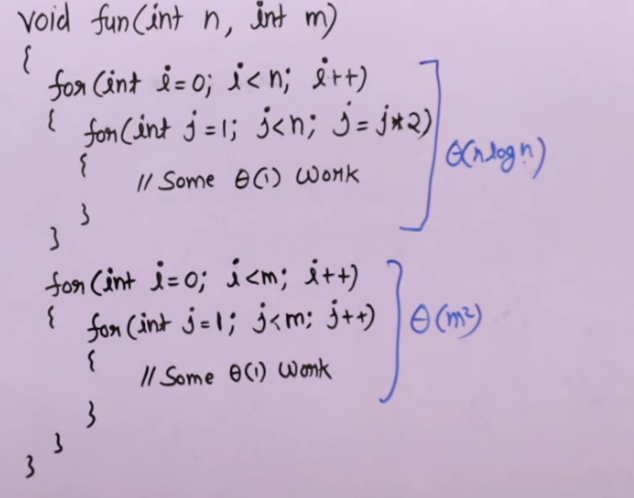 void fun(int n, int m)
{
for(int i=0; i<n; i++)
{ for(int j=1; j<n; j=j*2)
{
// Some θ(1) Work
}
}
θ(n log n)
for(int i=0; i<m; i++)
{ for(int j=1; j<m; j++)
{
// Some θ(1) Work
}
}
}
θ(m²)